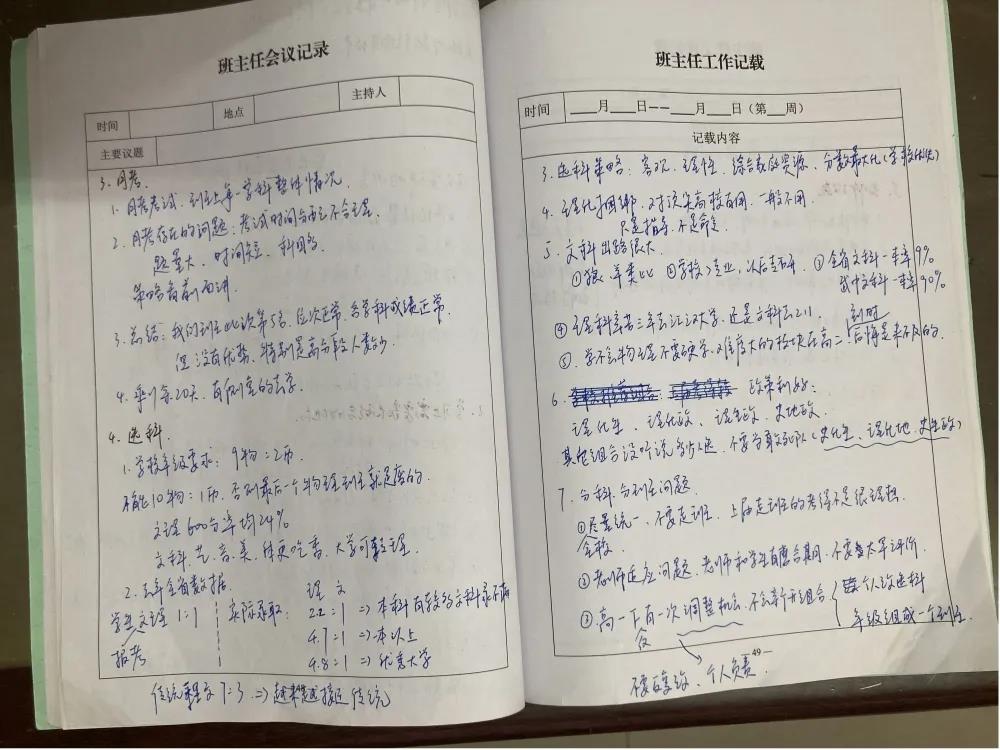 班主任会议记录
时间 地点 主持人
主要议题
3. 月考.
1. 月考考试. 到班上单一学科整体情况
2. 月考存在的问题: 考试时间分配不合理.
题量大、时间短、科目多.
策略看前面讲.
3. 总结: 我们班此次第5名, 位次正常, 各学科成绩正常.
但没有优势, 特别是高分段人数少.
4. 剩余20天, 有侧重的去学.
4. 选科.
1. 学校年级要求: 9物:2历.
不能10物:1历, 否则最后一个物理班就是磨的.
文理600分率均24%
文科. 艺、音、美、体更吃香, 大学可转理.
2. 去年全省数据. 理 文
学生文理 1:1 实际录取: 2.2:1 ⇒ 本科有较多文科录不满
报考 4.7:1 ⇒ 一本以上
4.8:1 ⇒ 优秀大学
传统理文7:3 ⇒ 越来越接近传统
班主任工作记载
时间 ___月___日——___月___日(第___周)
记载内容
3. 选科策略: 客观、理性、综合教育资源、分数最大化(学校优化)
4. 理化捆绑, 对顶尖高校有用, 一般不用
只是指导, 不是命令.
5. 文科出路很大
① ②学校>专业, 以后去考研. ③全省文科一本率19%
我中文科一本率90%
④ 理科高考三年去江汉大学, 还是文科去211.
⑤. 学不会物理不要硬学. 难度大的板块在高二, 到时后悔是来不及的.
6. 政策利好:
理化生、理化政、理生政、史地政.
其他组合没听说多少人选. 不要当敢死队(史化生、理化地、史生政)
7. 分科. 分班问题
①尽量统一, 不要走班. 上届走班的考得不是很理想.
合校
②老师适应问题. 老师和学生有磨合期. 不要夸大军评价.
③高一下有一次调整机会. 不会新开组合 个人改选科
会 年级组成一个班.
— 49 —
不要反复改、个人负责.